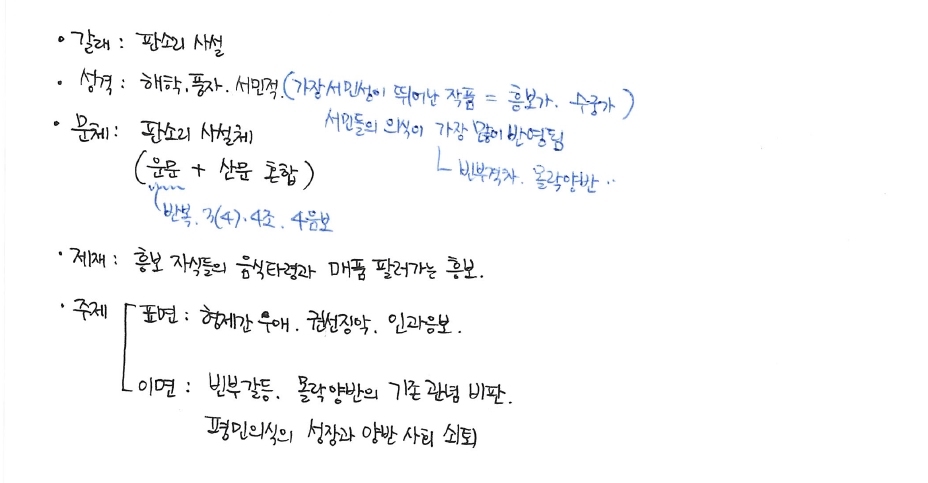 • 갈래 : 판소리 사설
• 성격 : 해학. 풍자. 서민적. (가장 서민성이 뛰어난 작품 = 흥보가. 수궁가)
서민들의 의식이 가장 많이 반영됨
• 문체 : 판소리 사설체
└ 빈부격차. 몰락양반 ..
(운문 + 산문 혼합)
반복. 3(4)·4조. 4음보
• 제재 : 흥보 자식들의 음식타령과 매품 팔러가는 흥보.
• 주제 표면 : 형제간 우애. 권선징악. 인과응보.
이면 : 빈부갈등. 몰락양반의 기존 관념 비판.
평민의식의 성장과 양반 사회 쇠퇴